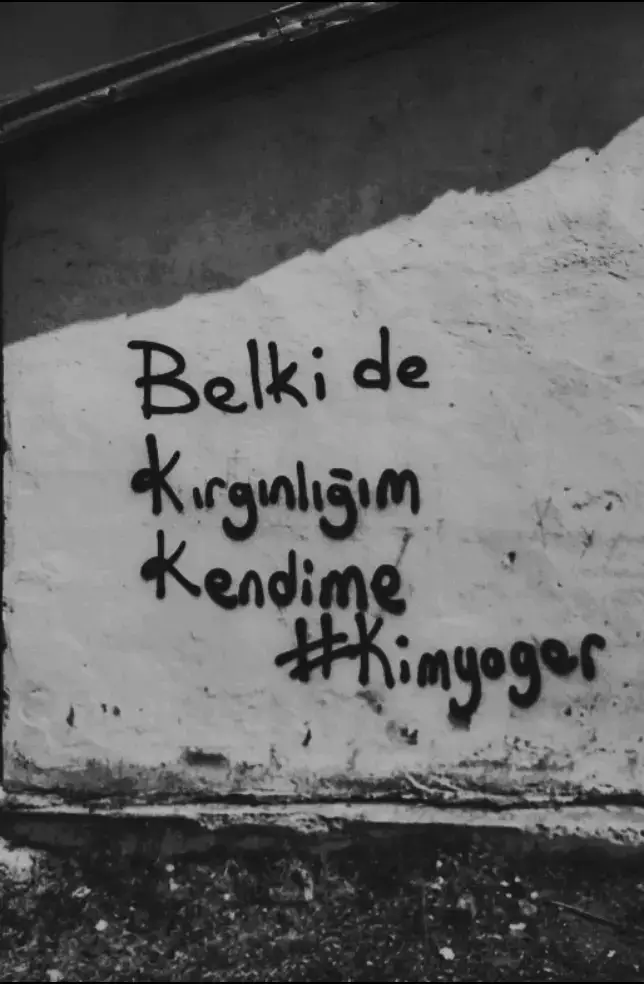 Belki de
Kırgınlığım
Kendime
#Kimyager